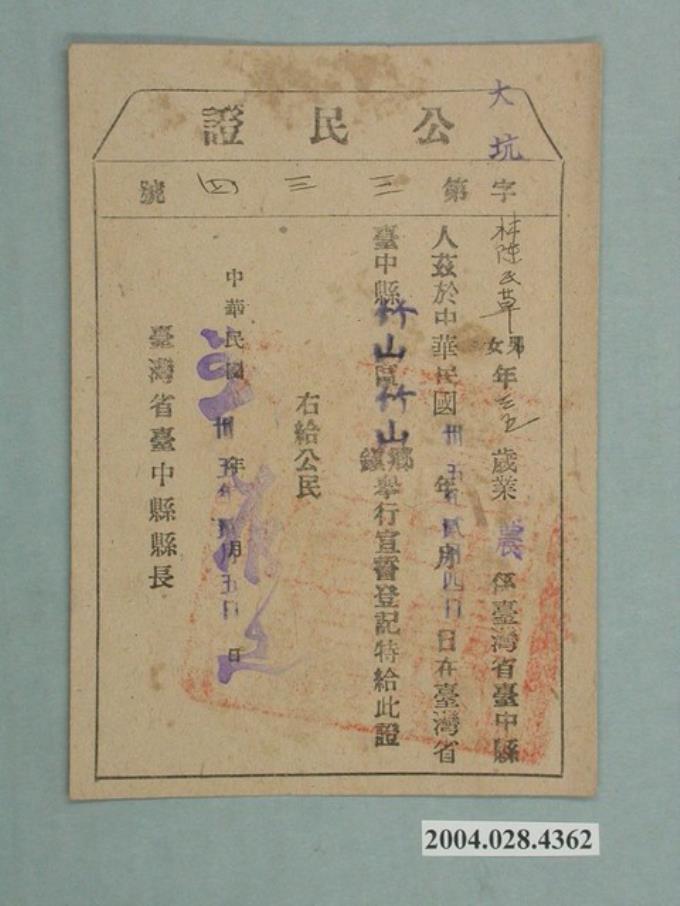 公民證
大坑字第三三四號
林陳氏草 男女 年三五歲業 農 係臺灣省臺中縣
人茲於中華民國卅五年貳月四日日在臺灣省
臺中縣竹山區竹山鄉鎮舉行宣誓登記特給此證
右給公民
中華民國卅五年貳月五日
臺灣省臺中縣縣長
2004.028.4362